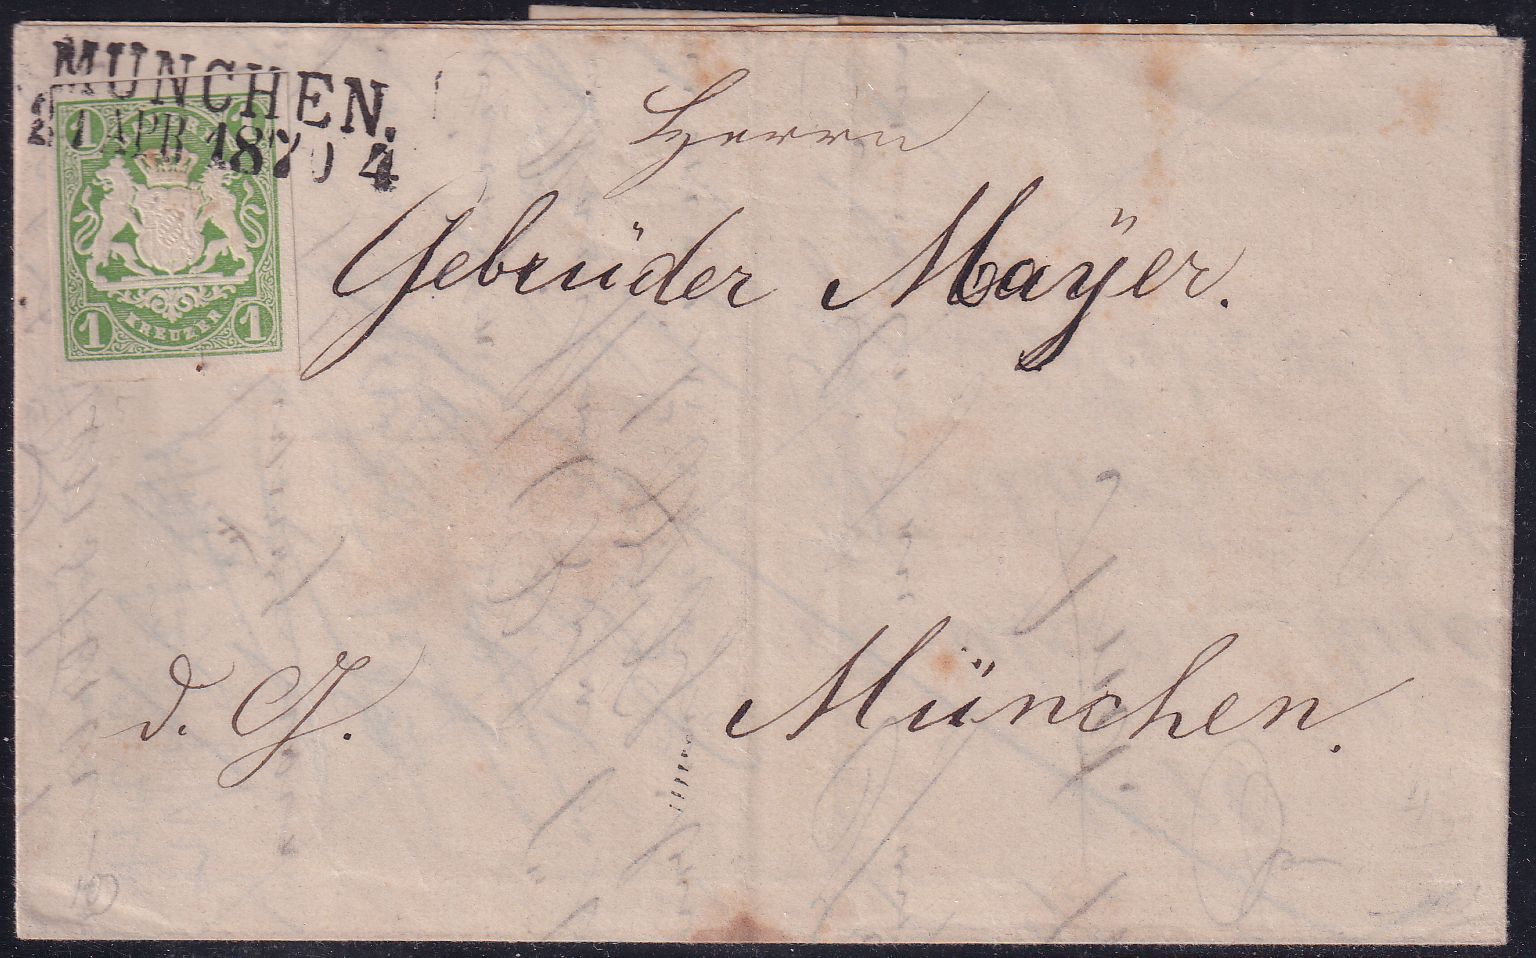 MÜNCHEN.
1 APR 1870 4
1 1
1 KREUZER 1
Herrn
Gebrüder Mayer.
d. G. München.